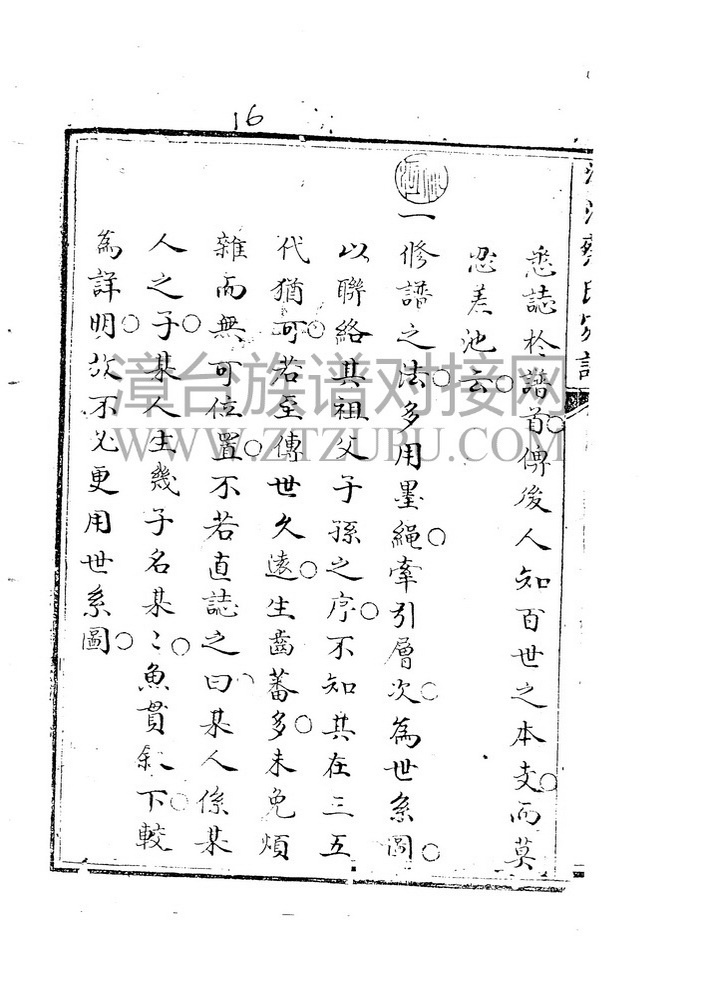 16
悉誌於譜首○俾後人知百世之本支○而莫
忍差池云○
一修譜之法○多用墨繩○牽引層次○為世系圖○
以聯絡其祖父子孫之序○不知其在三五
代猶可○若至傳世久遠○生齒蕃多○未免煩
雜而無可位置○不若直誌之曰○某人係某
人之子○某人生幾子名某〻○魚貫敘下○較
為詳明○故不必更用世系圖○
漳台族谱对接网
WWW.ZTZUPU.COM